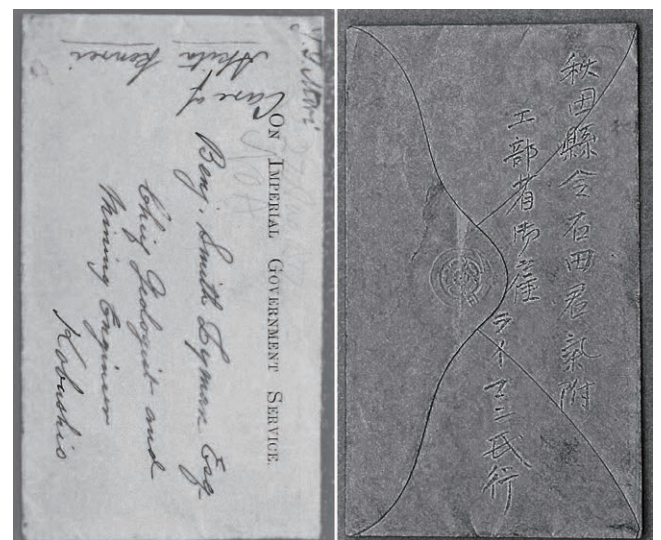 ON IMPERIAL GOVERNMENT SERVICE.
Benj. Smith Lyman Esq
Chief Geologist and
Mining Engineer
Kobusho
Care of
Akita
Kenrei
秋田縣令石田君気附
工部省御雇
ライマン氏行